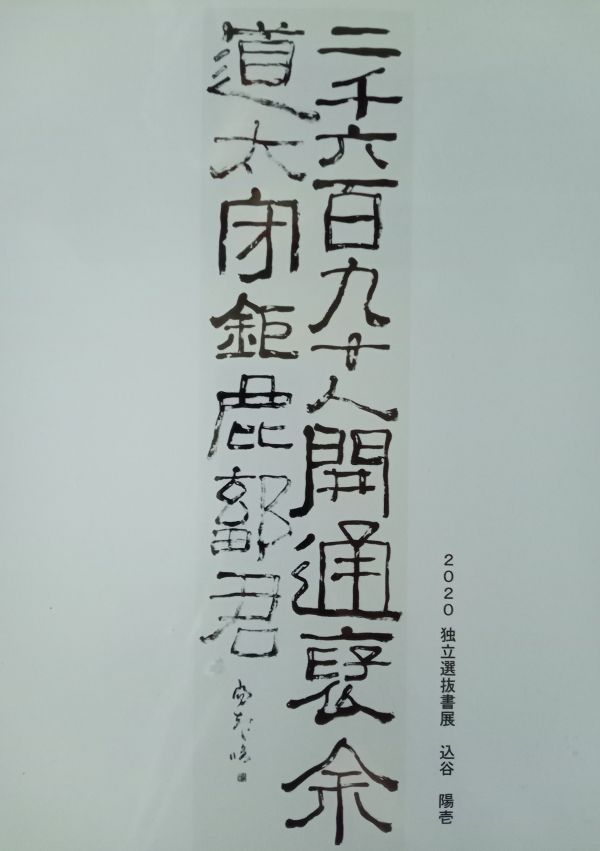 二千六百九十人開通褒余
道太守鉅鹿鄐君
２０２０ 独立選抜書展　込谷　陽壱